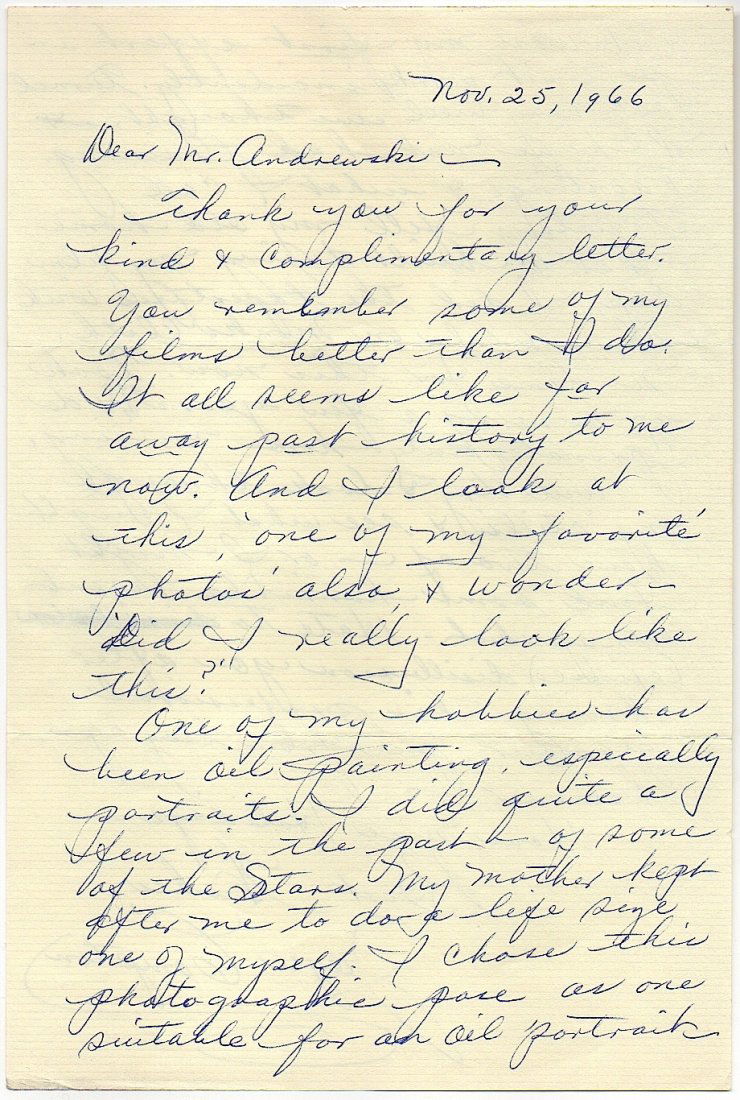 Nov. 25, 1966
Dear Mr. Andrewski —
Thank you for your
kind & complimentary letter.
You remember some of my
films better than I do.
It all seems like far
away past history to me
now. And I look at
this, 'one of my favorite
photos' also, & wonder —
"Did I really look like
this?"
One of my hobbies has
been oil painting, especially
portraits. I did quite a
few in the past — of some
of the Stars. My mother kept
after me to do a life size
one of myself. I chose this
photographic pose as one
suitable for an oil portrait